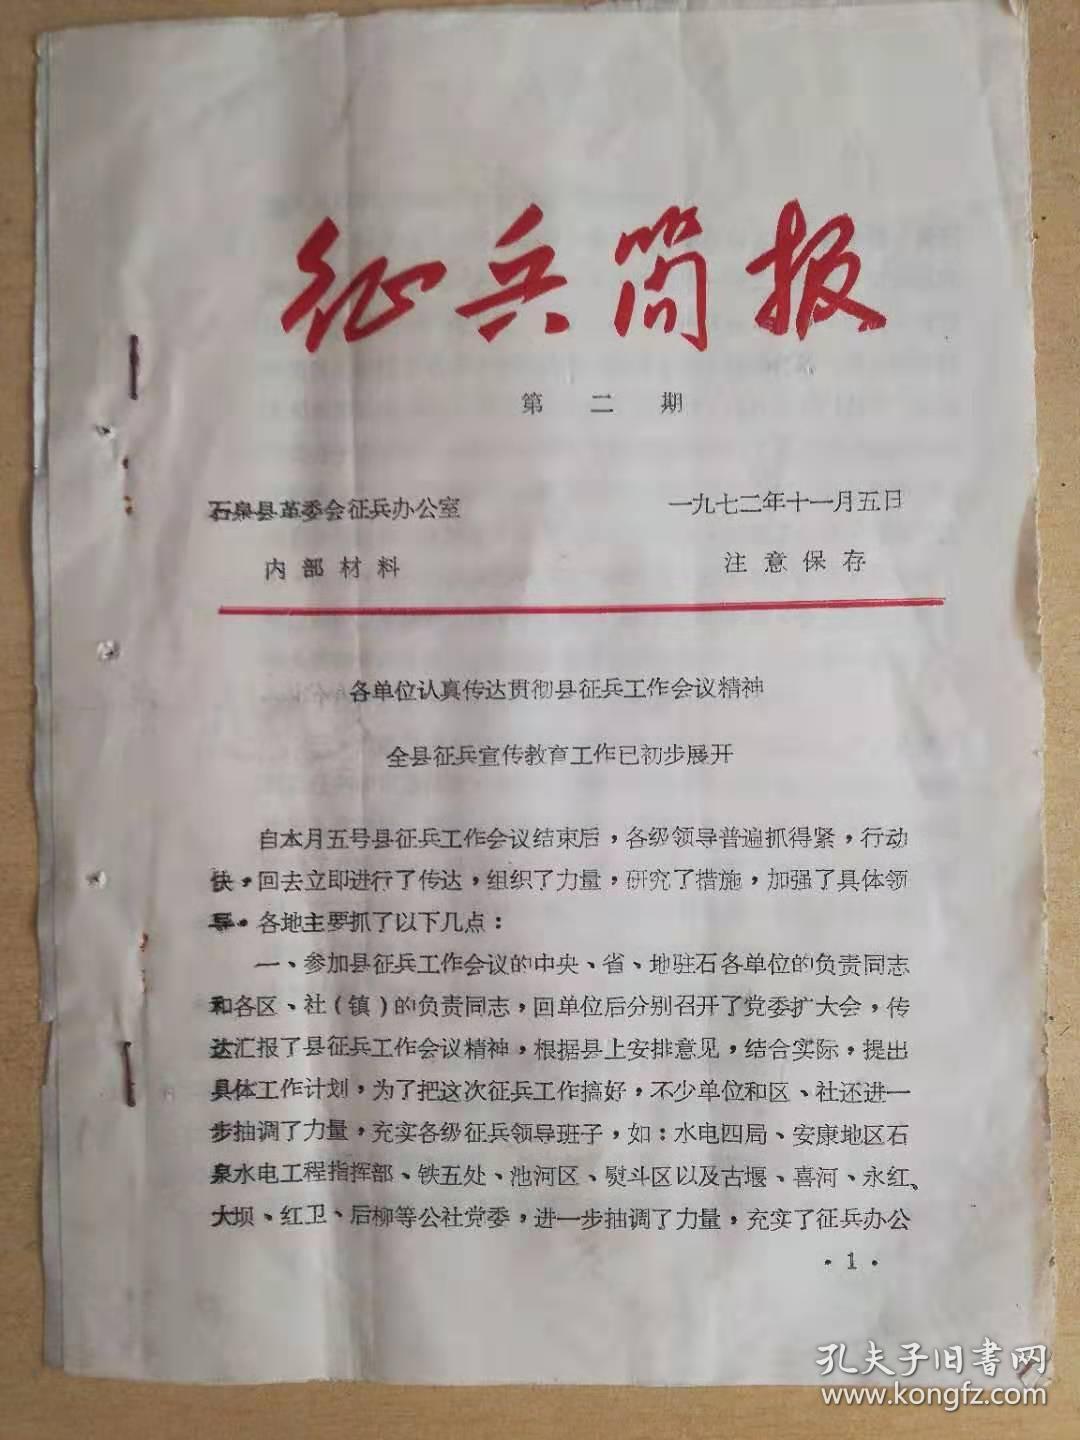 征兵简报
第二期
石泉县革委会征兵办公室 一九七二年十一月五日
内部材料 注意保存
各单位认真传达贯彻县征兵工作会议精神
全县征兵宣传教育工作已初步展开
自本月五号县征兵工作会议结束后，各级领导普遍抓得紧，行动
快，回去立即进行了传达，组织了力量，研究了措施，加强了具体领
导。各地主要抓了以下几点：
一、参加县征兵工作会议的中央、省、地驻石各单位的负责同志
和各区、社（镇）的负责同志，回单位后分别召开了党委扩大会，传
达汇报了县征兵工作会议精神，根据县上安排意见，结合实际，提出
具体工作计划，为了把这次征兵工作搞好，不少单位和区、社还进一
步抽调了力量，充实各级征兵领导班子，如：水电四局、安康地区石
泉水电工程指挥部、铁五处、池河区、熨斗区以及古堰、喜河、永红、
大坝、红卫、后柳等公社党委，进一步抽调了力量，充实了征兵办公
·1·
孔夫子旧书网
www.kongfz.com